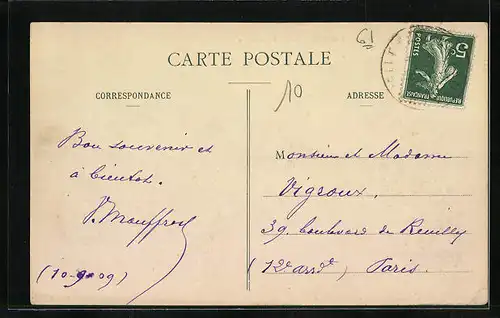 61
CARTE POSTALE
10
CORRESPONDANCE
ADRESSE
5c
POSTES
REPUBLIQUE FRANÇAISE
Bon souvenir et
à bientôt.
(10-9-09)
Monsieur et Madame
Vigroux.
39. boulevard de Reuilly
(12e arrdt) Paris.